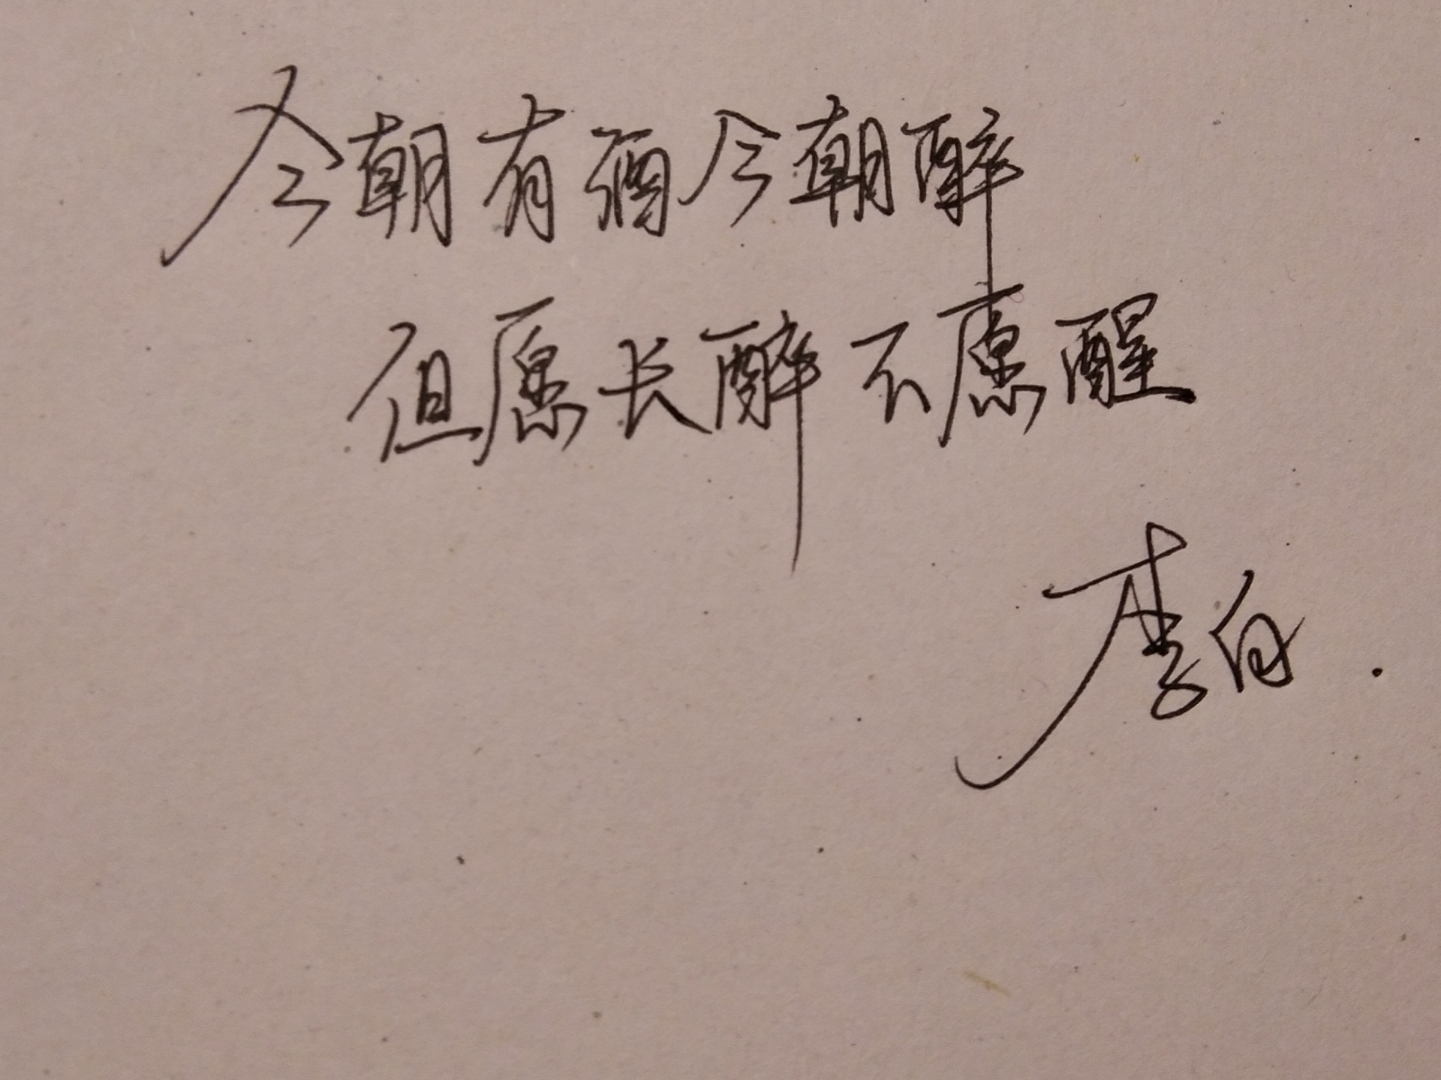 今朝有酒今朝醉
但愿长醉不愿醒
李白.